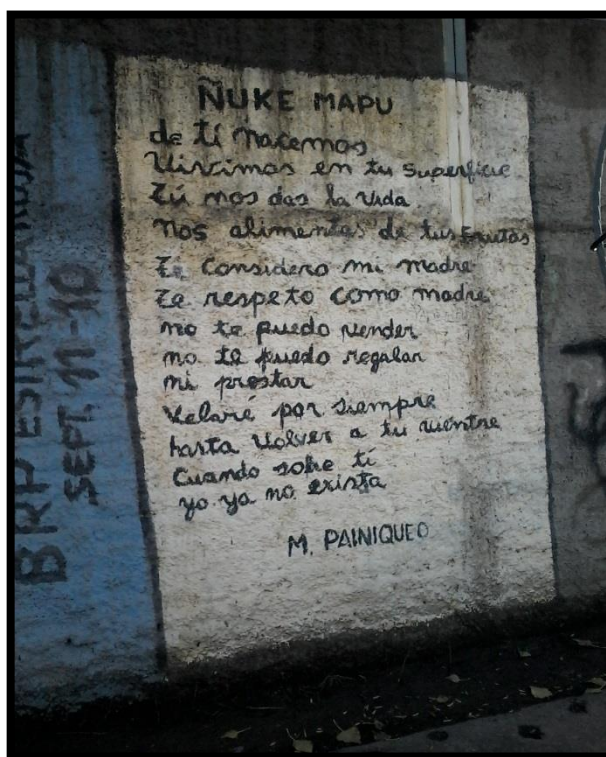 ÑUKE MAPU
de ti nacemos
Vivimos en tu superficie
Tú nos das la vida
nos alimentas de tus frutos
Te considero mi madre
Te respeto como madre
no te puedo vender
no te puedo regalar
ni prestar
Velaré por siempre
hasta volver a tu vientre
Cuando sobe ti
yo ya no exista
M. PAINIQUEO
BRP ESTRELLA ROJA
SEPT. 11-10